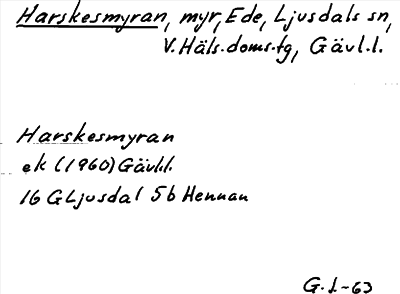 Harskesmyran, myr, Ede, Ljusdals sn,
V. Häls. doms. tg, Gävl. l.
Harskesmyran
ek (1960) Gävl.l.
16 G Ljusdal 5b Hennan
G. L-63